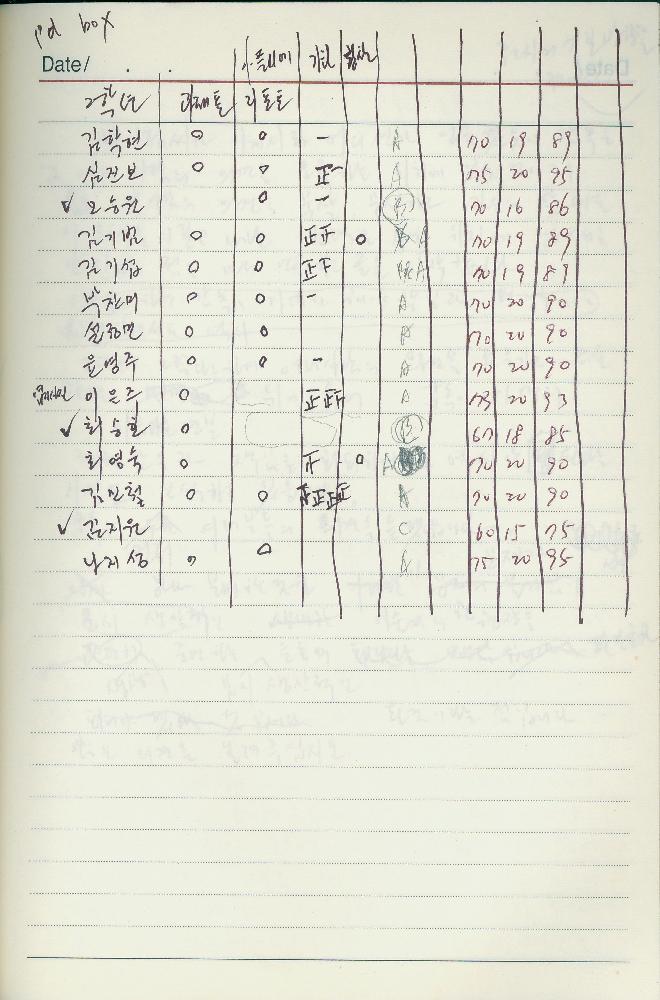 Pd box
Date/ . . .
2학년 리포트
김학현 o o ー A 70 19 89
심진보 o o 正ー A 75 20 95
✓ 오승원 o ー B 70 16 86
김기범 o o 正正 o A 70 19 89
김기섭 o o 正下 A 70 19 89
박찬미 o o ー A 70 20 90
o o A 70 20 90
윤영주 o o ー A 70 20 90
이은주 o A 73 20 93
✓ 최승호 o B 67 18 85
최영숙 o 正 o A 70 20 90
김민철 o o A 70 20 90
✓ 김지원 C 60 15 75
나지성 o o A 75 20 95